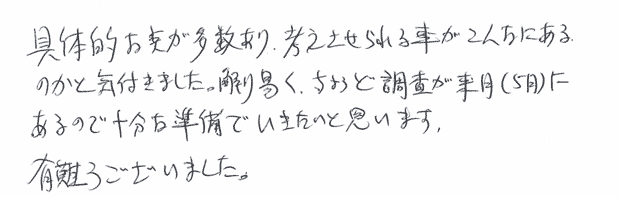 具体的お支が多数あり、考えさせられる事がこんなにある
のかと気付きました。解り易く、ちょうど調査が来月(5月)に
あるので十分な準備でいきたいと思います。
有難うございました。